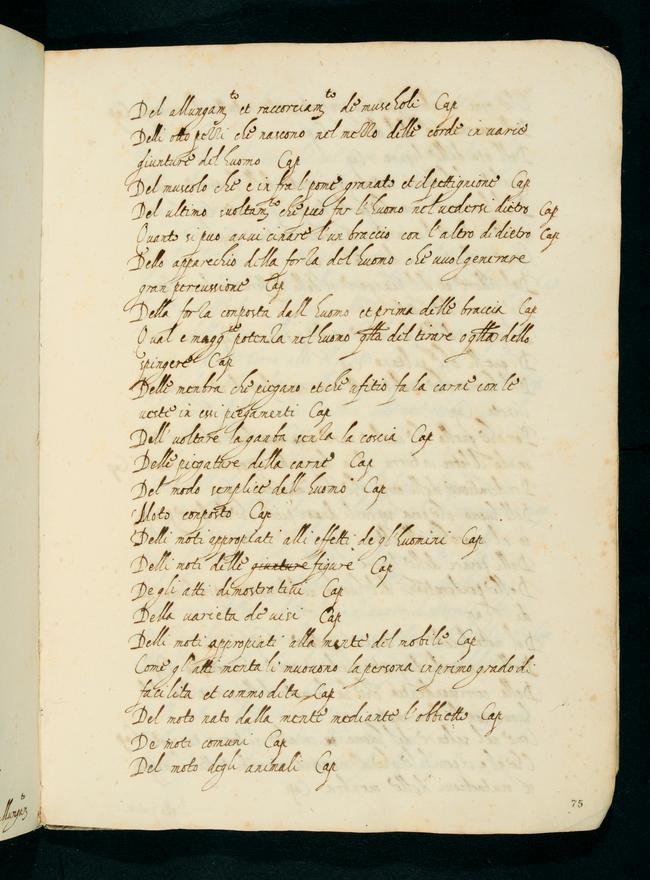 Del allungamto et raccorciamto de muscholi Cap
Delli otto pezzi che nascono nel mezzo delle corde in varie
giunture del huomo Cap
Del muscolo che e infra l pome granato et il pettignione Cap
Del ultimo suoltamto che puo far l'huomo nel uedersi dietro Cap
Quanto si puo auuicinare l'un braccio con l'altro di dietro Cap
Dello apparechio della forza del huomo che vuol generare
gran percussione Cap
Della forza conposta dall huomo et prima delle braccia Cap
Qual e maggre potenza nel huomo qlla del tirare o qlla dello
spingere Cap
Delle menbra che piegano et che ufitio fa la carne con le
ueste in essi piegamenti Cap
Dell uoltare la ganba senza la coscia Cap
Delle piegature della carne Cap
Del modo semplice dell huomo Cap
Moto conposto Cap
Delli moti appropiati alli effetti de gl'huomini Cap
Delli moti delle giunture figure Cap
De gli atti dimostratiui Cap
Della varieta de visi Cap
Delli moti appropiati alla mente del mobile Cap
Come gl'atti mentali muouono la persona in primo grado di
facilita et commodita Cap
Del moto nato dalla mente mediante l'obbietto Cap
De moti comuni Cap
Del moto degli animali Cap
75